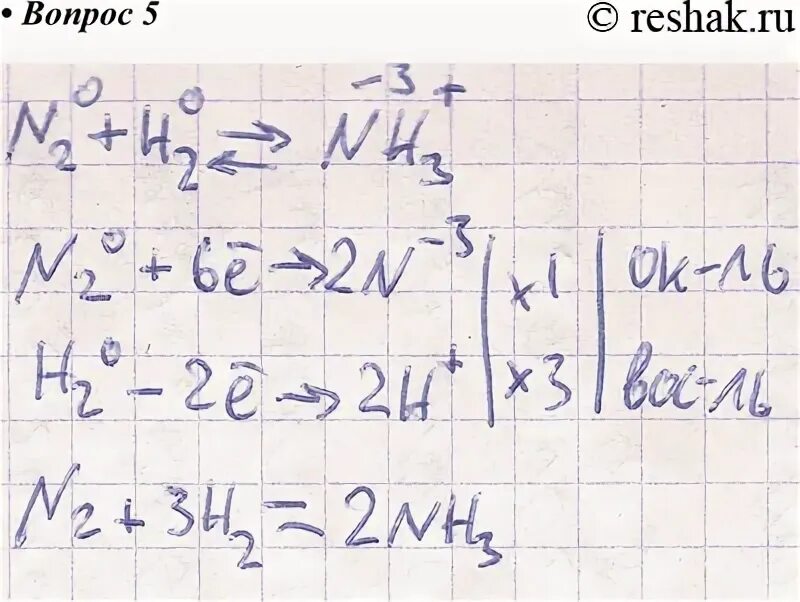 • Вопрос 5
© reshak.ru
N₂⁰ + H₂⁰ ⇄ N⁻³H₃⁺
N₂⁰ + 6ē → 2N⁻³ | x1 | ок-ль
H₂⁰ - 2ē → 2H⁺ | x3 | вос-ль
N₂ + 3H₂ = 2NH₃